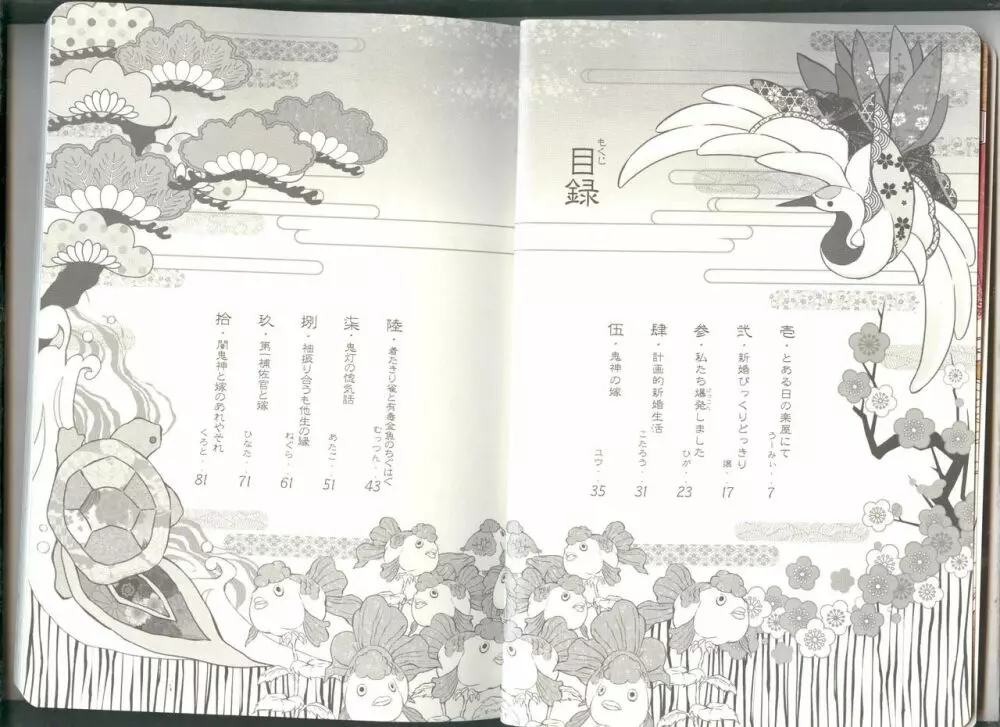 もくじ
目録
壱・とある日の楽屋にて
うーみぃ・・7
弐・新婚びっくりどっきり
・・17
参・私たち爆発しました
ひが・・23
肆・計画的新婚生活
こたろう・・31
伍・鬼神の嫁
ユウ・・35
陸・着たきり雀と有毒金魚のちぐはぐ
むっつん・・43
柒・鬼灯の惚気話
あたこ・・51
捌・袖振り合うも他生の縁
ねぐら・・61
玖・第一補佐官と嫁
ひなた・・71
拾・闇鬼神と嫁のあれやそれ
くろと・・81